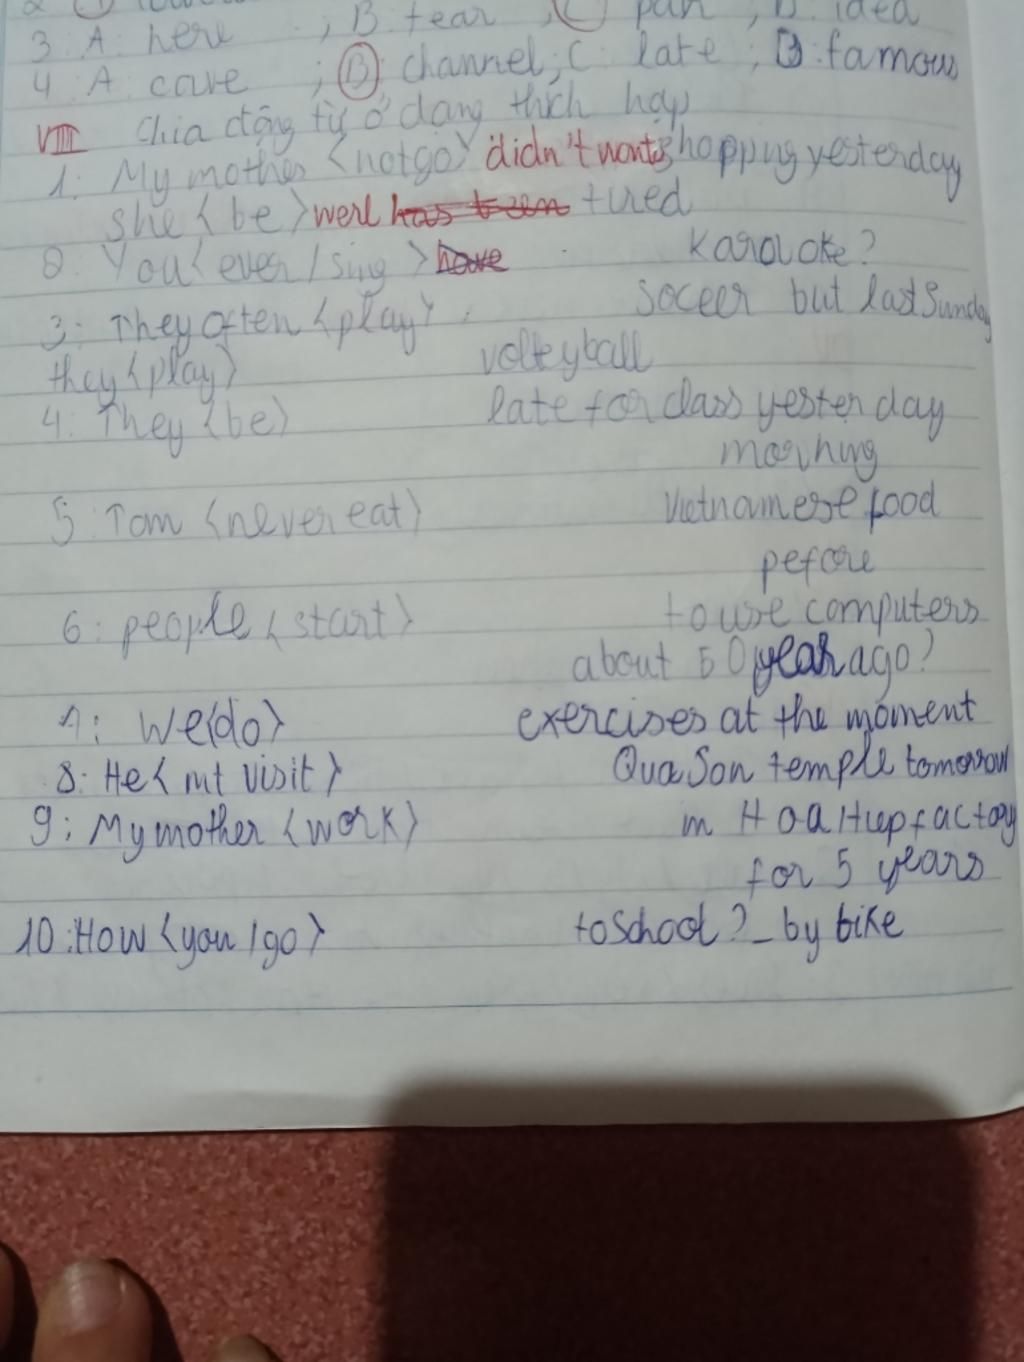 3: A: here ; B: fear ; C pan ; D: idea
4: A: cave ; B: channel; C: late ; D: famous
VIII Chia động từ ở dạng thích hợp
1: My mother <notgo> didn't want shopping yesterday
she <be> werl has been tired
2: You <ever / sing> have Karaoke?
3: They often <play> soceer but last Sunday
they <play> volleyball
4: They <be> late for class yesterday
morning
5: Tom <never eat> Vietnamese food
pefore
6: people <start> to use computers
about 50 year ago?
7: We <do> exercises at the moment
8: He < nt visit > Qua Son temple tomorrow
9: My mother <work> in Hoa Hiep factory
for 5 years
10: How <you / go> to School? _ by bike